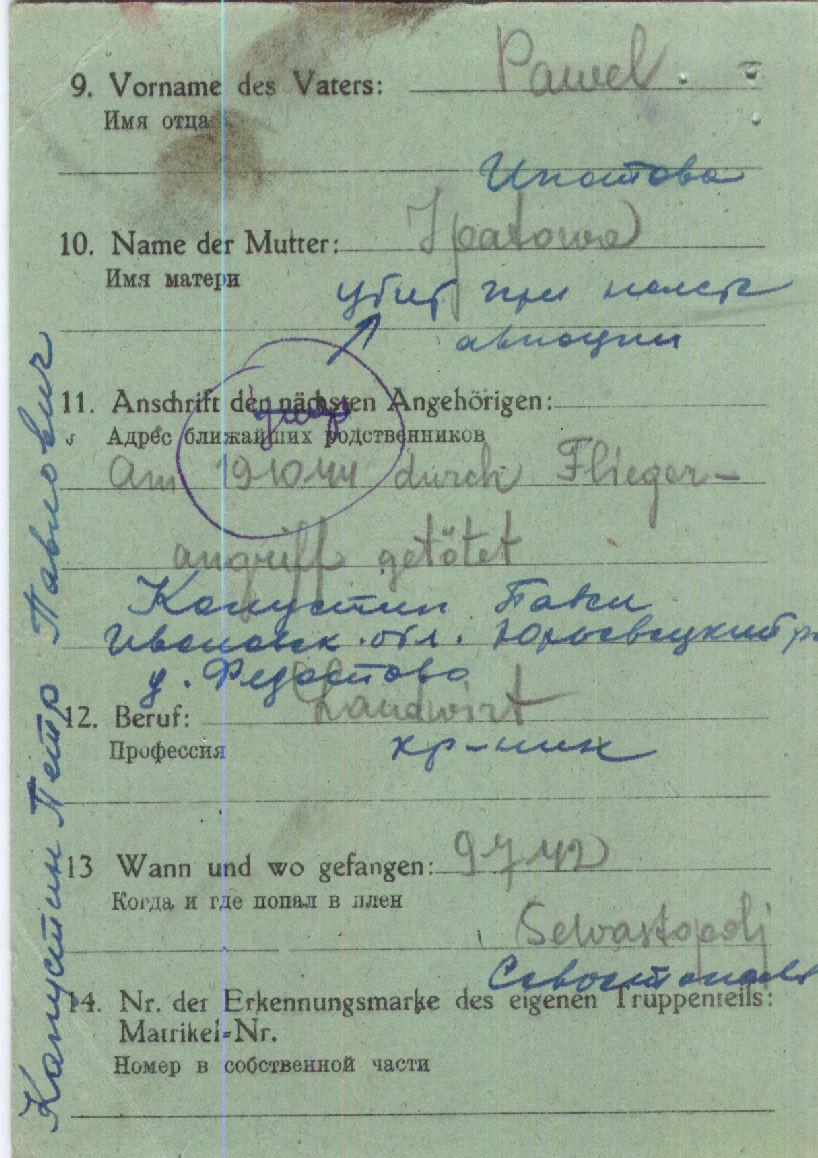 9. Vorname des Vaters: Pawel
Имя отца
Ипатова
10. Name der Mutter: Ipatowa
Имя матери
убит при налете
авиации
11. Anschrift der nächsten Angehörigen:
Адрес ближайших родственников
Am 19 10 44 durch Flieger-
angriff getötet
Капустин
Ивановск. обл. Юрьевецкий р
д. Федотово
12. Beruf: Landwirt
Профессия
кр-нин
13 Wann und wo gefangen: 9 7 42
Когда и где попал в плен
Sewastopolj
Севостополь
14. Nr. der Erkennungsmarke des eigenen Truppenteils:
Matrikel-Nr.
Номер в собственной части
Капустин Петр Павлович